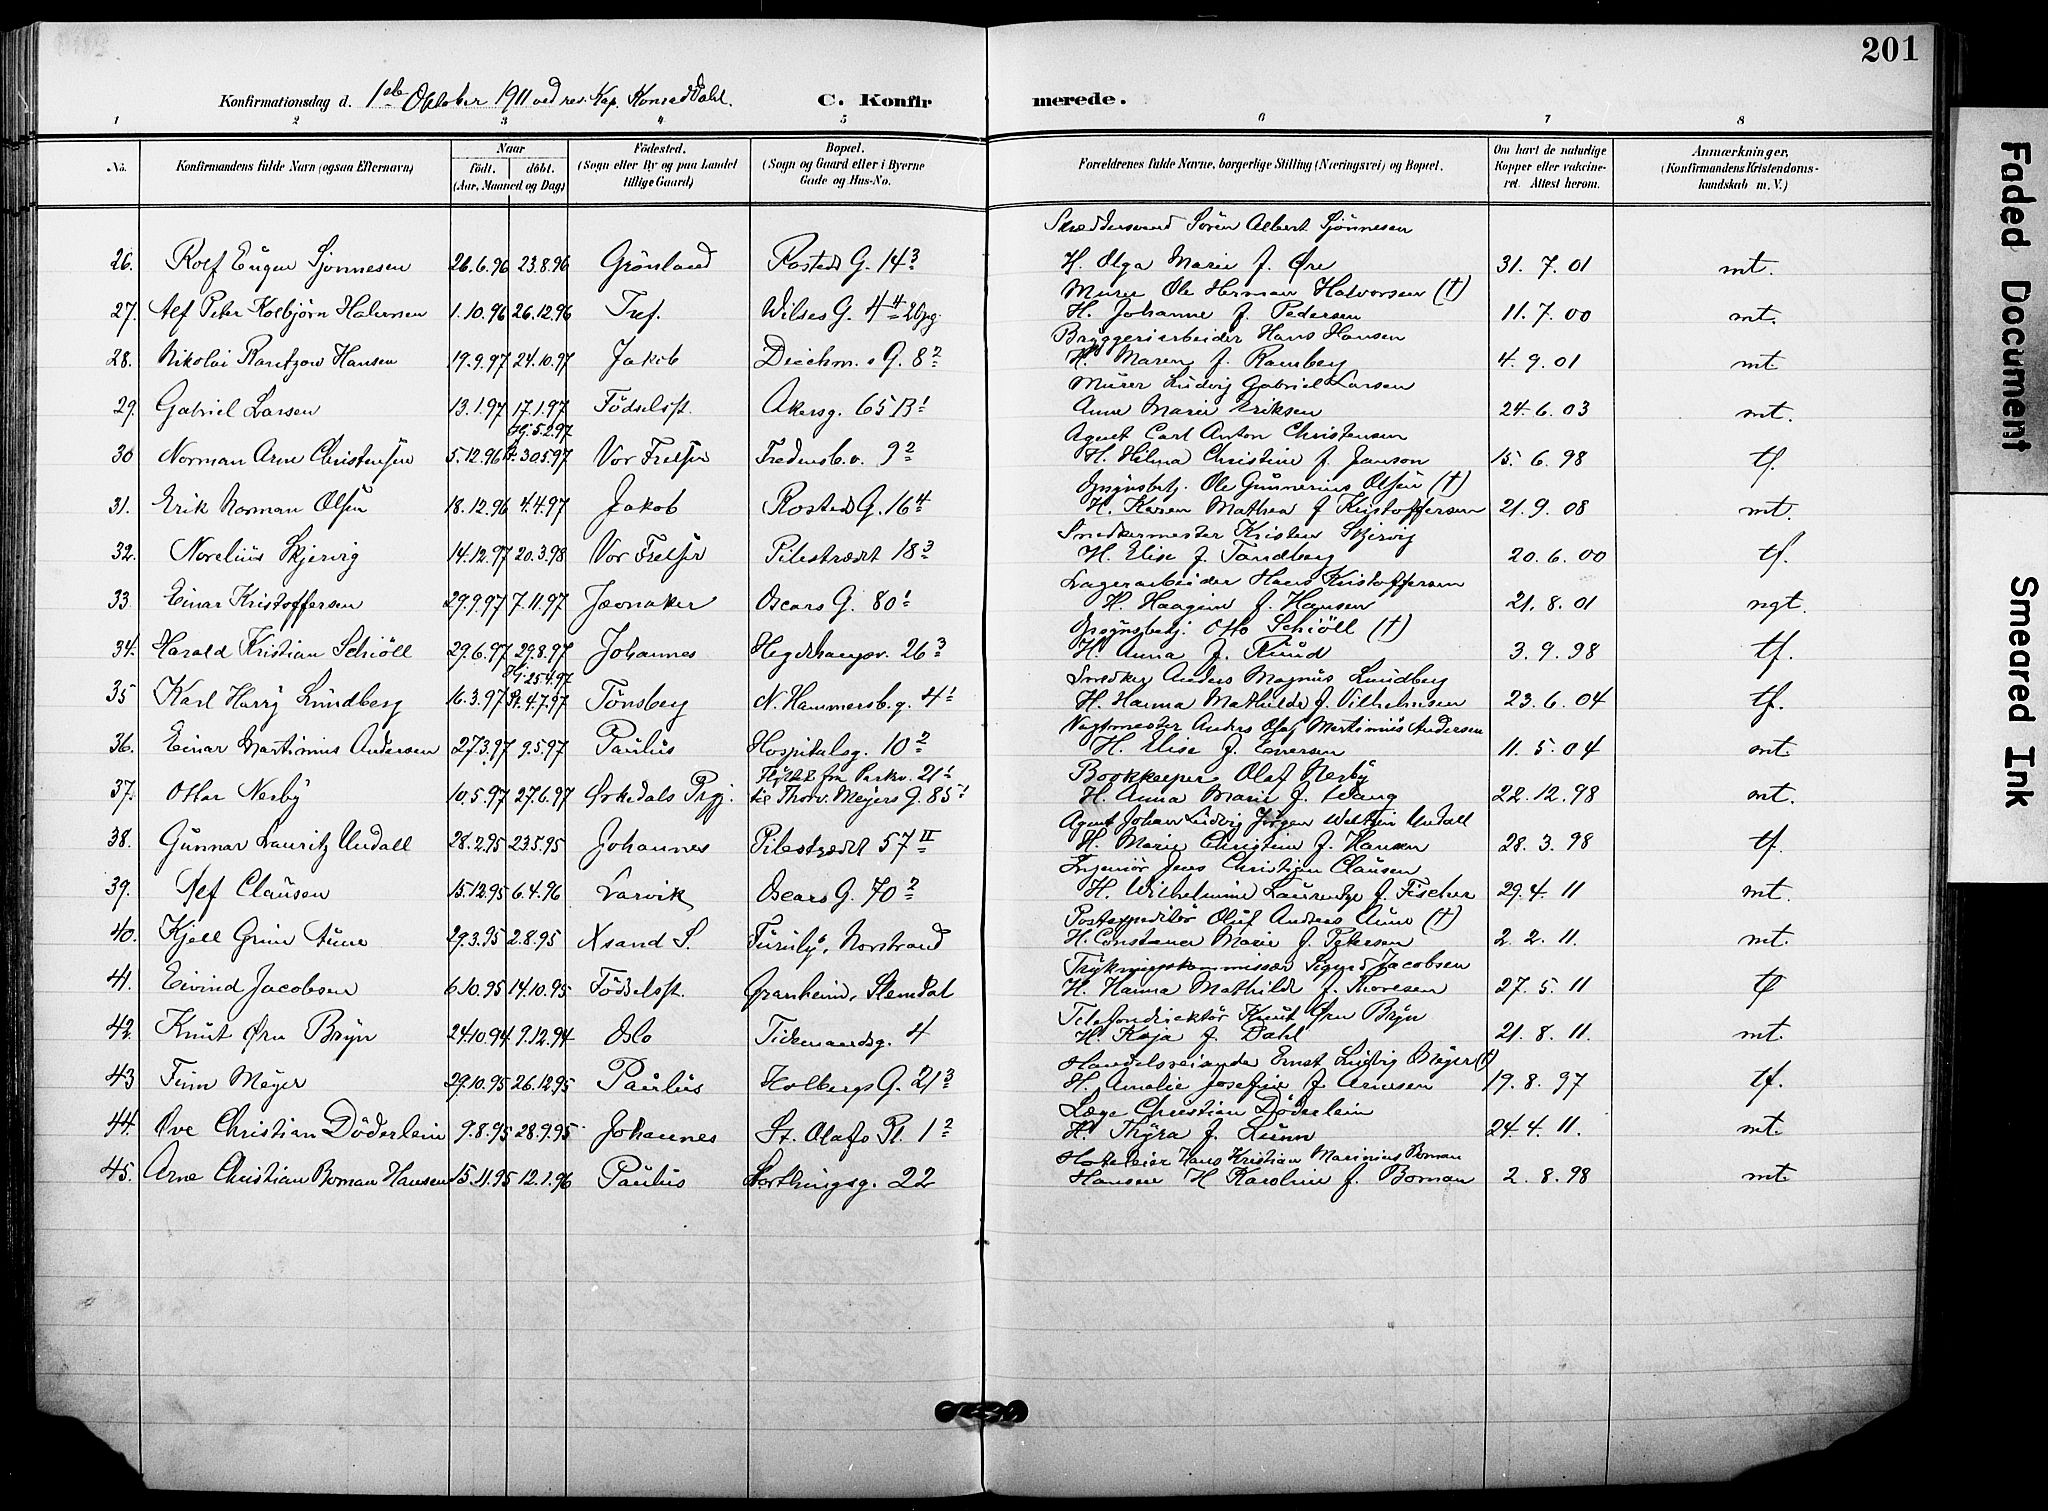 201
Konfirmationsdag d. 1ste Oktober 1911 ved res. Kap. Konrad Dahl. C. Konfirmerede.
1 2 3 4 5 6 7 8
No. Konfirmandens fulde Navn (ogsaa Efternavn) Naar født. døbt. (Aar, Maaned og Dag) Fødested. (Sogn eller By og paa Landet tillige Gaard.) Bopæl. (Sogn og Gaard eller i Byerne Gade og Hus-No. Forældrenes fulde Navne, borgerlige Stilling (Næringsvei) og Bopæl. Om havt de naturlige Kopper eller vakcineret. Attest herom. Anmærkninger, (Konfirmandens Kristendomskundskab m. V.)
Skræddersvend Sören Albert Sjönnesen
26. Rolf Eugen Sjönnesen 26.6.96 23.8.96 Grönland Rosteds G. 14 3 H. Olga Marie f. Øre 31. 7. 01 mt.
Murer Ole Herman Halvorsen (†)
27. Alf Peter Kolbjörn Halvorsen 1.10.96 26.12.96 Tref. Wilses G. 4 4 Opg. H. Johanne f. Pedersen 11. 7. 00 mt.
Bryggeriarbeider Hans Hansen
28. Nikolai Rantzow Hansen 19.9.97 24.10.97 Jakob Diechm.s G. 8 2 H. Maren f. Ramberg 4. 9. 01 mt
Murer Ludvig Gabriel Larsen
29. Gabriel Larsen 13.1.97 17.1.97 Födselsst. Akersg. 65 B 1 Anne Marie Eriksen 24. 6. 03 mt.
Hj. 5.2.97 Agent Carl Anton Christensen
30 Norman Arne Christensen 5.12.96 30.5.97 Vor Frelser Fredensb.v. 9 2 H. Hilma Christine f. Janson 15. 6. 98 tf.
Gpsynsbetj. Ole Gunnerius Olsen (†)
31. Erik Norman Olsen 18.12.96 4.4.97 Jakob Rosteds G. 16 4 H. Karen Mathea f. Kristoffersen 21. 9. 08 mt.
Snedkermester Kristen Skjervig
32. Norelius Skjervig 14.12.97 20.3.98 Vor Frelser Pilestrædet 18 3 H. Elise f. Tandberg 20. 6. 00 tf.
Lagerarbeider Hans Kristoffersen
33 Einar Kristoffersen 29.9.97 7.11.97 Jevnaker Oscars G. 80 1 H. Haagine f. Hansen 21. 8. 01 ngt.
Opsynsbetj. Otto Schiöll (†)
34. Harald Kristian Schiöll 29.6.97 29.8.97 Johannes Hegdehaugsv. 26 3 H. Anna f. Ruud 3. 9. 98 tf.
Hj. 25.4.97 Snedker Anders Magnus Lundberg
35 Karl Harry Lundberg 16.3.97 4.7.97 Tönsberg N. Hammersb.g. 4 1 H. Hanna Mathilde f. Vilhelmsen 23. 6. 04 tf.
Vagtmester Anders Olaf Martinius Andersen
36. Einar Martinius Andersen 27.3.97 9.5.97 Paulus Hospitalsg. 10 2 H. Elise f. Enersen 11. 5. 04 mt.
Flyttet fra Parkv. 21 1 Bookkeeper Olaf Nerby
37. Ottar Nerby 10.5.97 27.6.97 Ørkedals Prgj. til Thorv. Meyers G. 85 1 H. Anna Marie f. Wang 22. 12. 98 mt.
Agent Johan Ludvig Jörgen Undall
38. Gunnar Lauritz Undall 28.2.95 23.5.95 Johannes Pilestrædet 57 II H. Marie Christine f. Hansen 28. 3. 98 tf.
Ingeniör Jens Christian Clausen
39. Alf Clausen 15.12.95 6.4.96 Larvik Oscars G. 70 2 H. Wilhelmine f. Fischer 29. 4. 11 mt.
Postexpeditör Oluf Andreas Aune (†)
40. Kjell Grim Aune 29.3.95 2.8.95 Xsand S. Furuly, Norstrand H. Constance Marie f. Petersen 2. 2. 11. mt.
Sigurd Jacobsen
41. Eivind Jacobsen 6.10.95 14.10.95 Födselsst. Granheim, Slemdal H. Hanna Mathilde f. Thoresen 27. 5. 11 tf
Telefondirektör Knut Ørn Bryn
42. Knut Ørn Bryn 24.10.94 9.12.94 Oslo Tidemandsg. 4 H. Kaja f. Dahl 21. 8. 11. mt.
Handelsreisende Ernst Ludvig Meyer (†)
43 Finn Meyer 29.10.95 26.12.95 Paulus Holbergs G. 21 3 H. Amalie Josefine f. Arnesen 19. 8. 97 tf.
Læge Christian Döderlein
44. Ove Christian Döderlein 9.8.95 28.9.95 Johannes St. Olafs Pl. 1 2 H. Thyra f. Lunn 24. 4. 11. mt.
Hoteleier Hans Kristian Marinius Boman
45. Arne Christian Boman Hansen 15.11.95 12.1.96 Paulus Storthingsg. 22 Hansen H. Karoline f. Boman 2. 8. 98 mt.
Faded Document
Smeared Ink